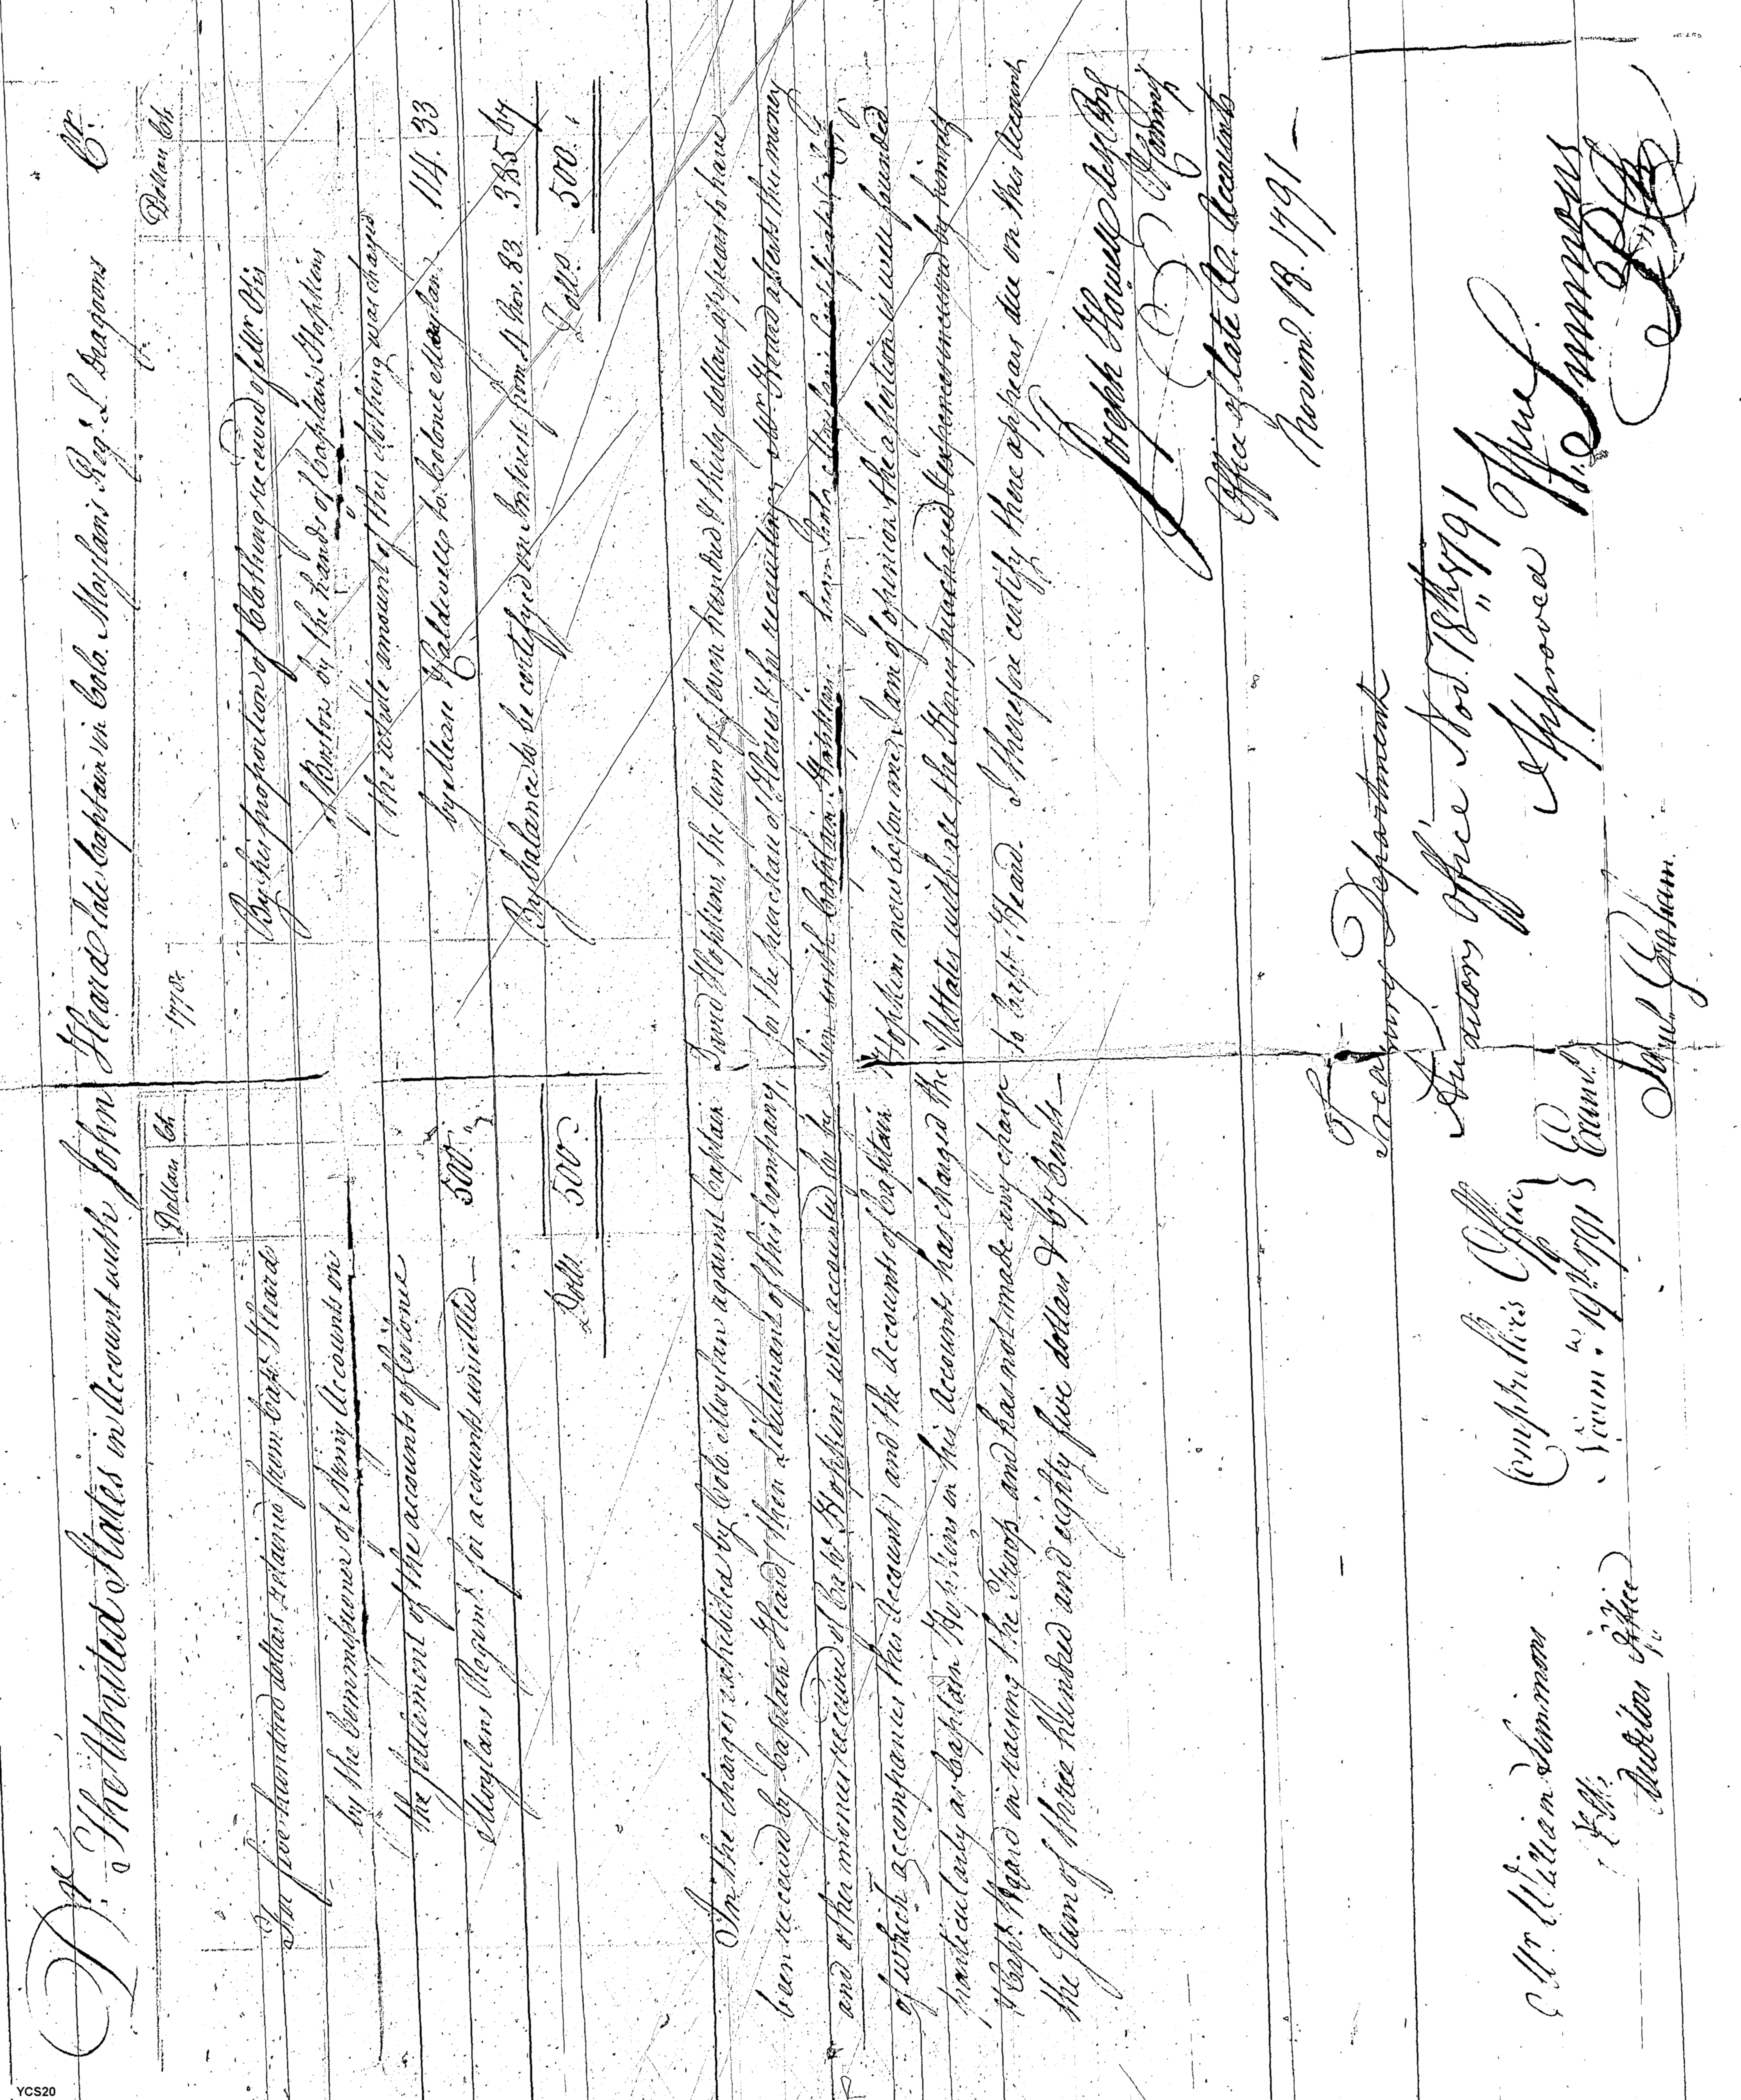 Dr. The United States in account with John Heard late Captain in Colo. Moylans Regt. L Dragoons Cr.
Dollars Cts
1778.
Dollars Cts
For five hundred dollars retained from Capt. Heard
by the Commissioner of Army Accounts on
the settlement of the accounts of Colonel
Moylans Regimt. for accounts unsettled — 500.
Dolls. 500.
By his proportion of Clothing received of Mr. Otis
of Boston by the hands of Captain Hopkins
(the whole amount of this clothing was charged
by Messrs Caldwells to Colonel Moylan. 114.33
By balance to be certifyed on Interest from 4 Nov. 83. 385 67
Dolls. 500.
In the charges exhibited by Colo. Moylan against Captain David Hopkins, the sum of seven hundred & thirty dollars appears to have
been received by Captain Heard (then Lieutenant of this Company) for the purchase of Horses & for recruiting. Mr. Heard asserts this money
and other monies received of Capt. Hopkins were accounted for by him with Captain Hopkins. from Colo. Moylans Certificate
of which accompanies this account) and the Accounts of Captain Hopkins now before me, I am of opinion the assertion is well founded
particularly as Captain Hopkins in his Accounts has charged the UStates with all the Horses purchased & expences incurred by himself
& Capt. Heard in raising the Troop and has not made any charge to Capt. Heard. I therefore certify there appears due on this Account
the Sum of three hundred and eighty five dollars & 67 Cents —
Joseph Howell
Office of late A. Accounts
Novem. 18. 1791 —
Treasury Department
Auditors Office Nov. 18th 1791
Approved
Wm. Simmons
Comptrollers Office
Novem. 19th 1791
Examd.
Saml. Graham.
Mr William Simmons
Auditors Office
YCS20